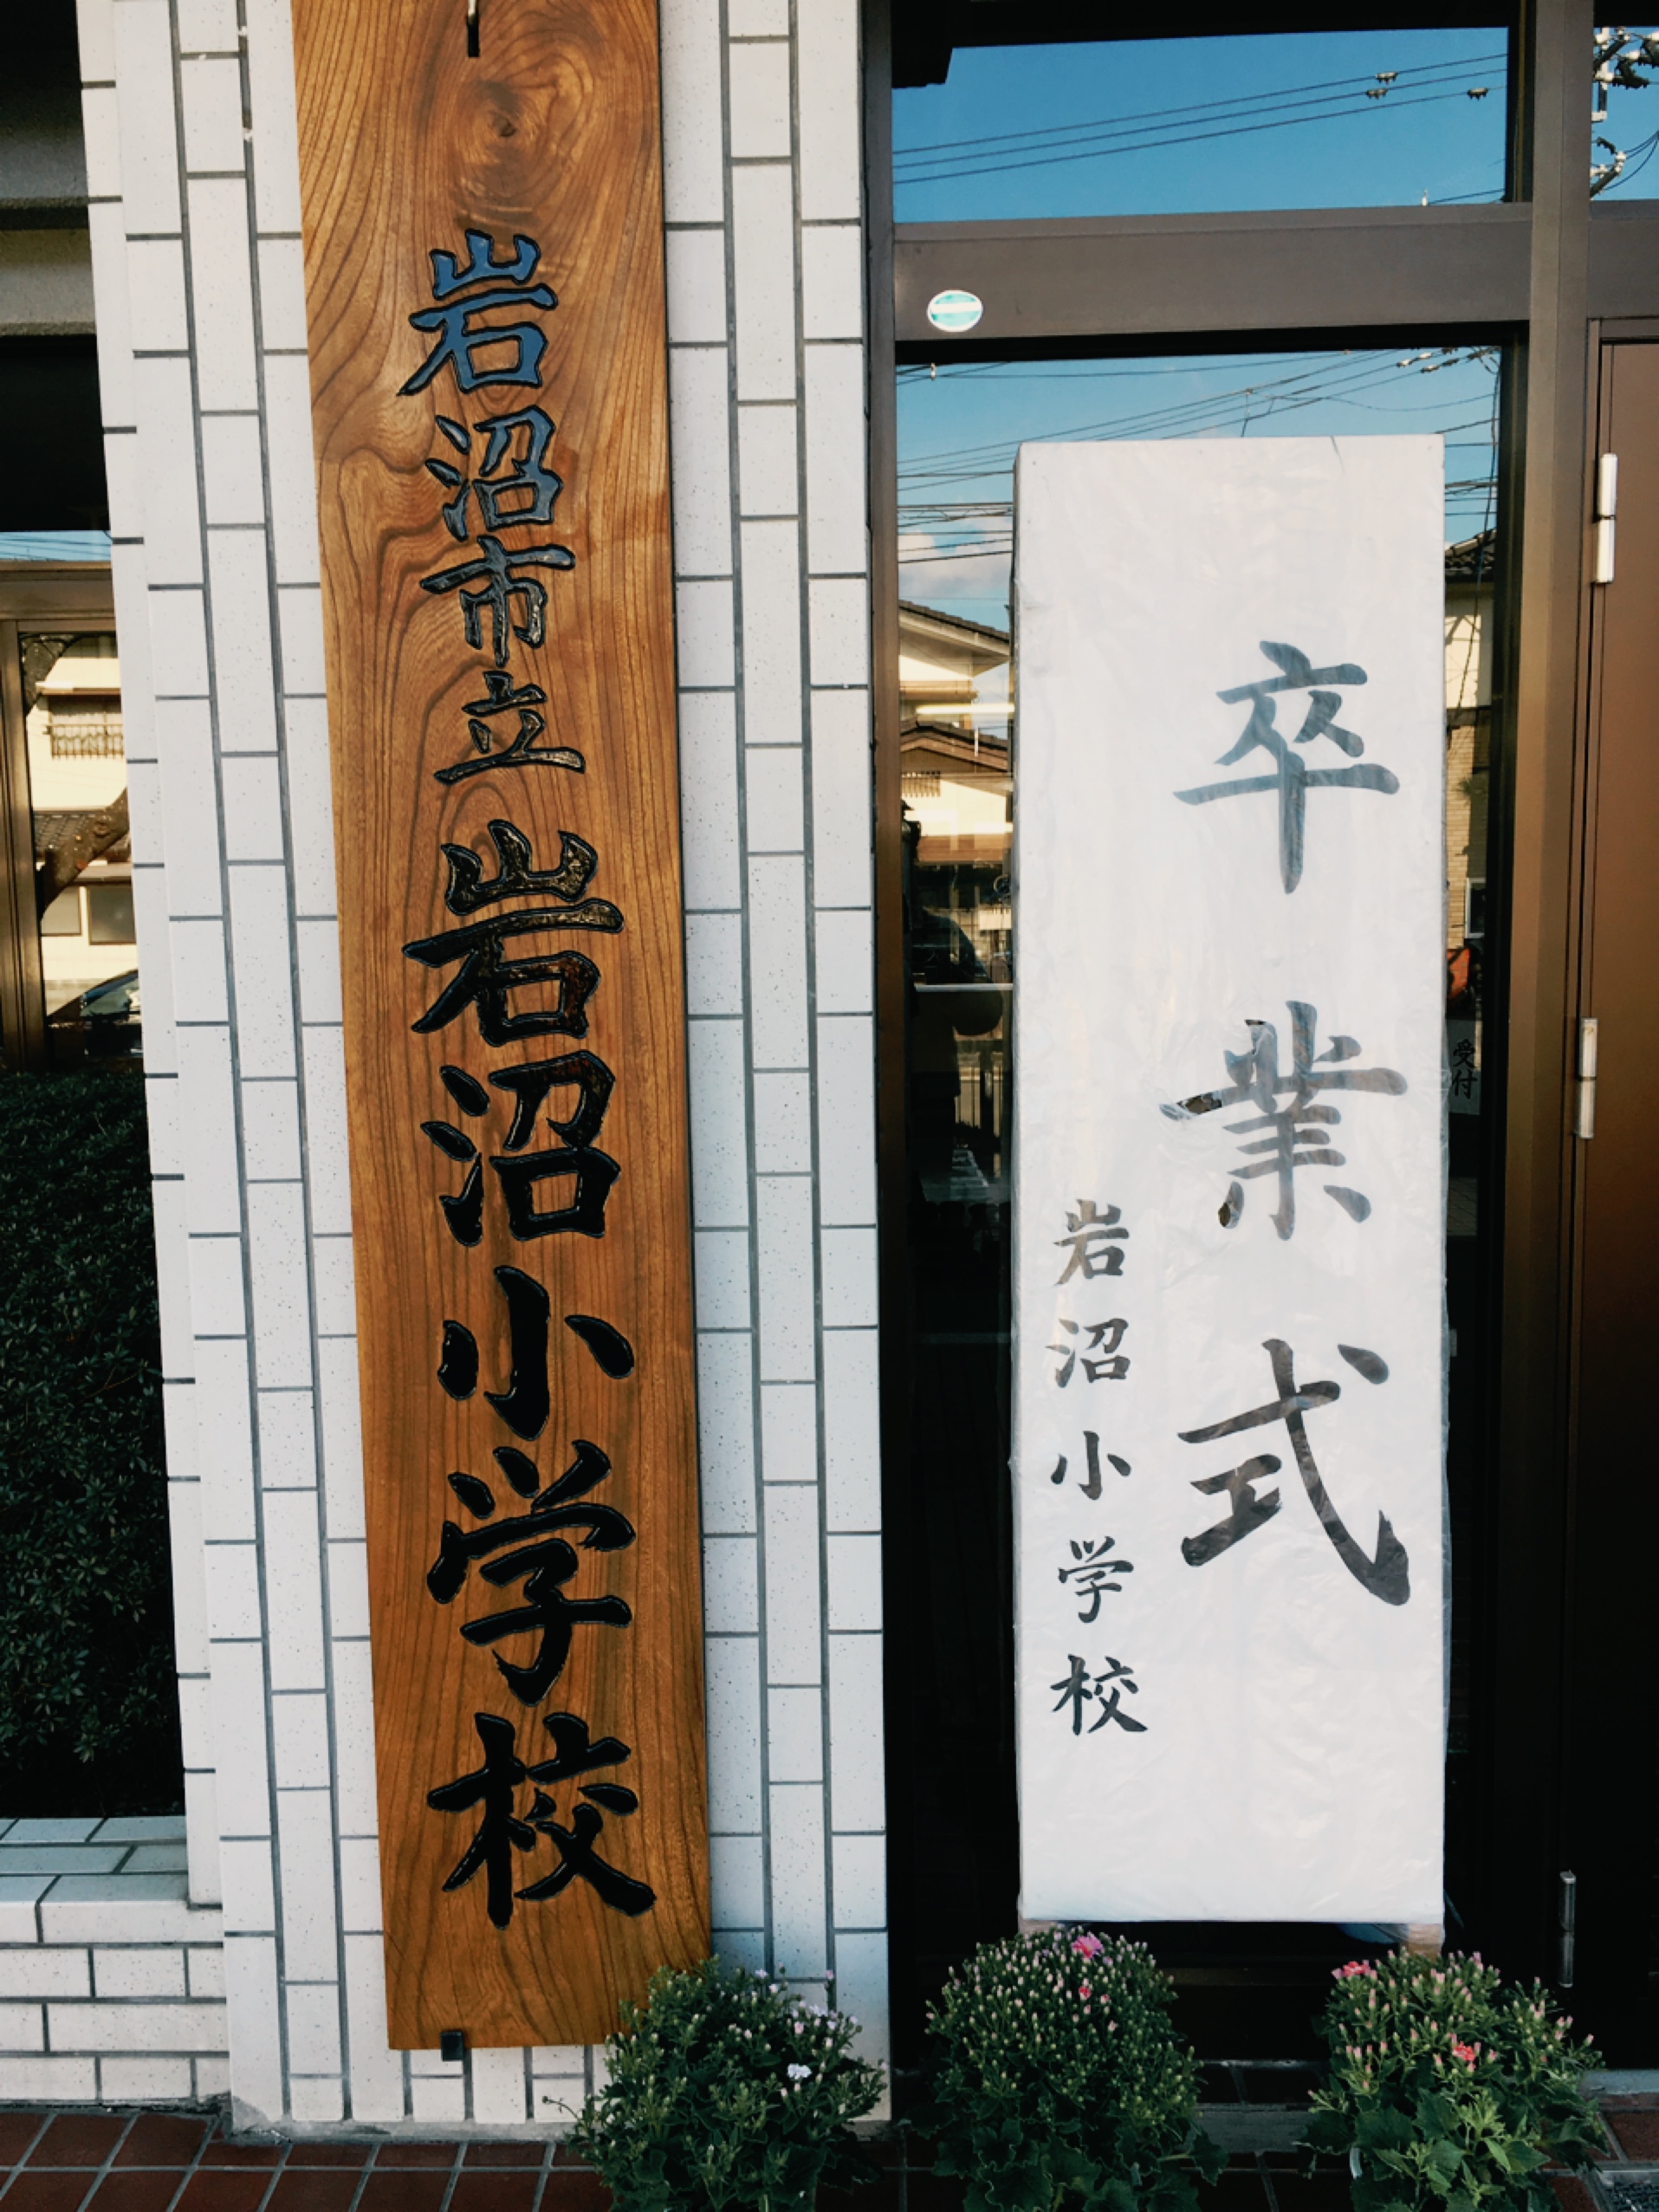 岩沼市立岩沼小学校
卒業式
岩沼小学校
受付